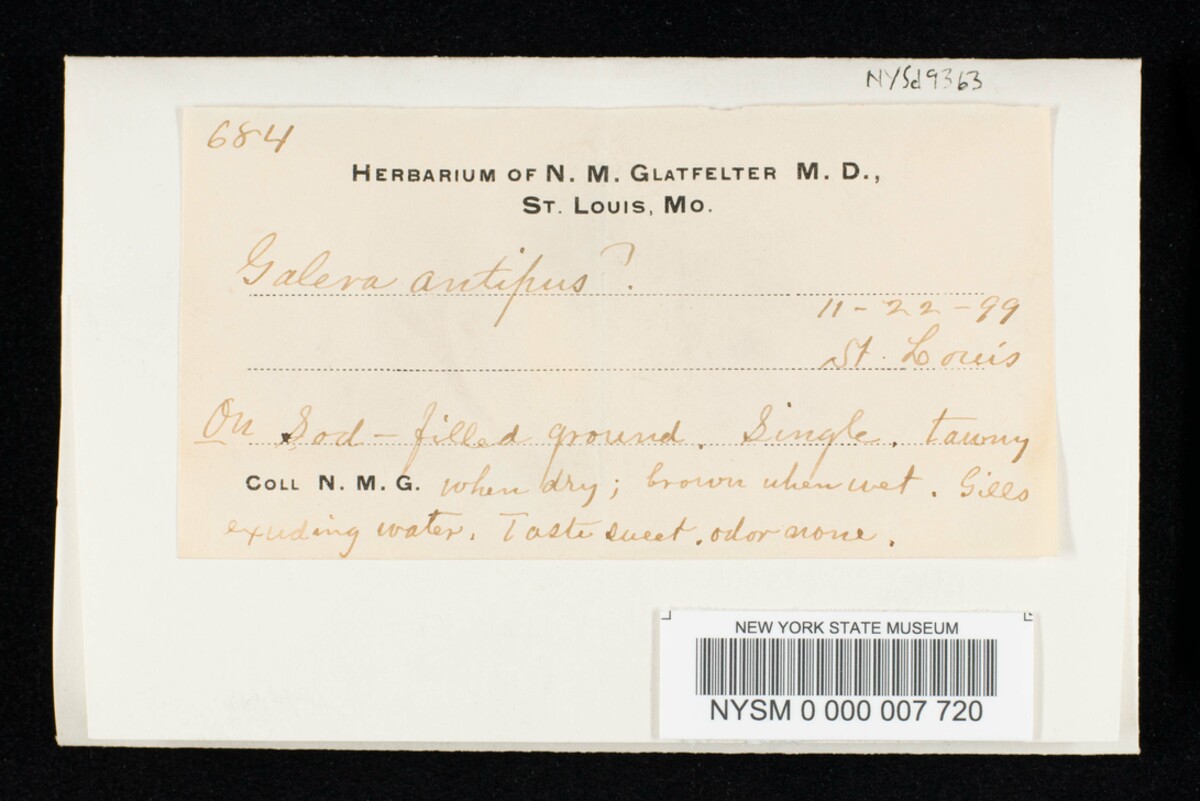 NYSd9363
684
HERBARIUM OF N. M. GLATFELTER M. D.,
ST. LOUIS, MO.
Galera antipus?
11-22-99
St. Louis
On Sod-filled ground. Single. tawny
COLL N. M. G. when dry; brown when wet. Gills
exuding water. Taste sweet. odor none.
NEW YORK STATE MUSEUM
NYSM 0 000 007 720